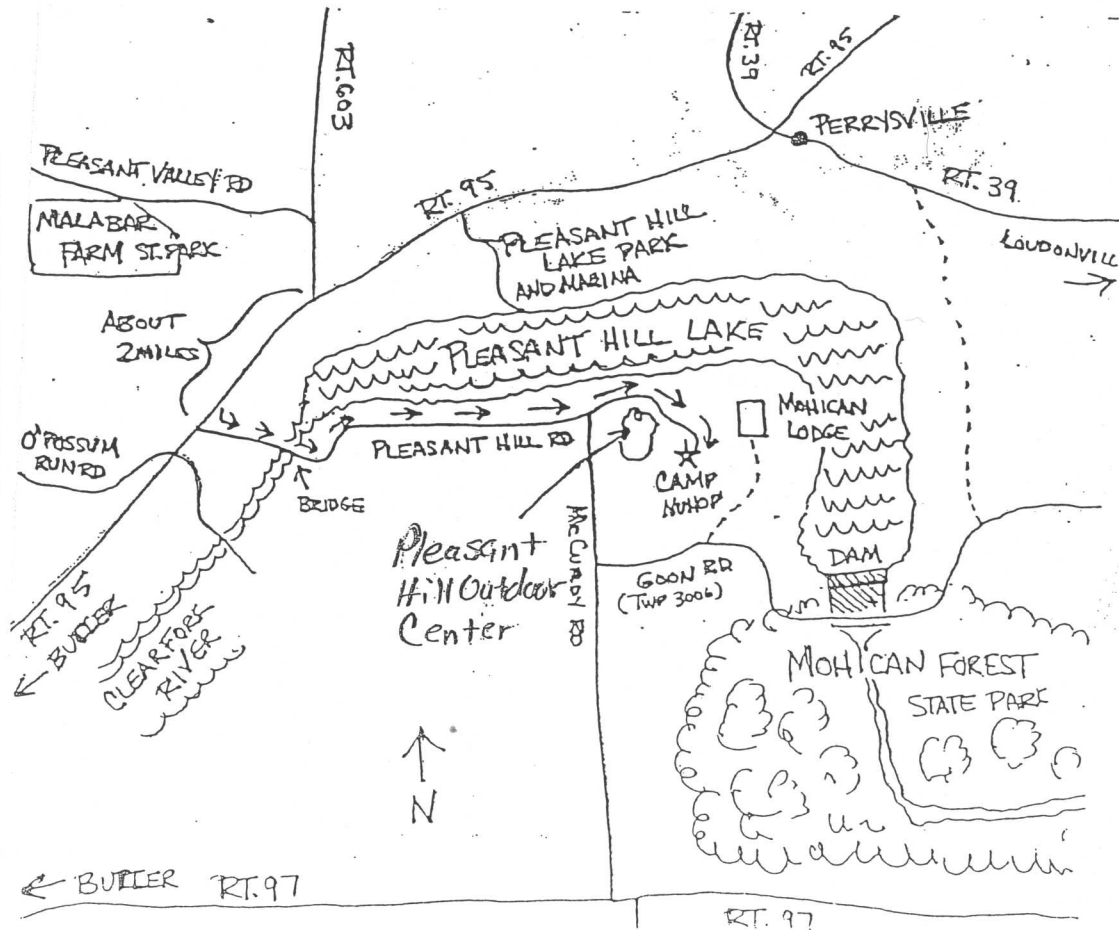 RT. 603
RT. 39
RT. 95
PERRYSVILLE
PLEASANT VALLEY RD
RT. 95
RT. 39
MALABAR
FARM ST. PARK
PLEASANT HILL
LAKE PARK
AND MARINA
LOUDONVILL
ABOUT
2 MILES
PLEASANT HILL LAKE
O'POSSUM
RUN RD
PLEASANT HILL RD
MOHICAN
LODGE
BRIDGE
CAMP
NUHOP
Pleasant
Hill Outdoor
Center
McCURDY RD
GOON RD
(TWP 3006)
DAM
RT. 95
BUTLER
CLEARFORK
RIVER
MOHICAN FOREST
STATE PARK
N
BUTLER RT. 97
RT. 97